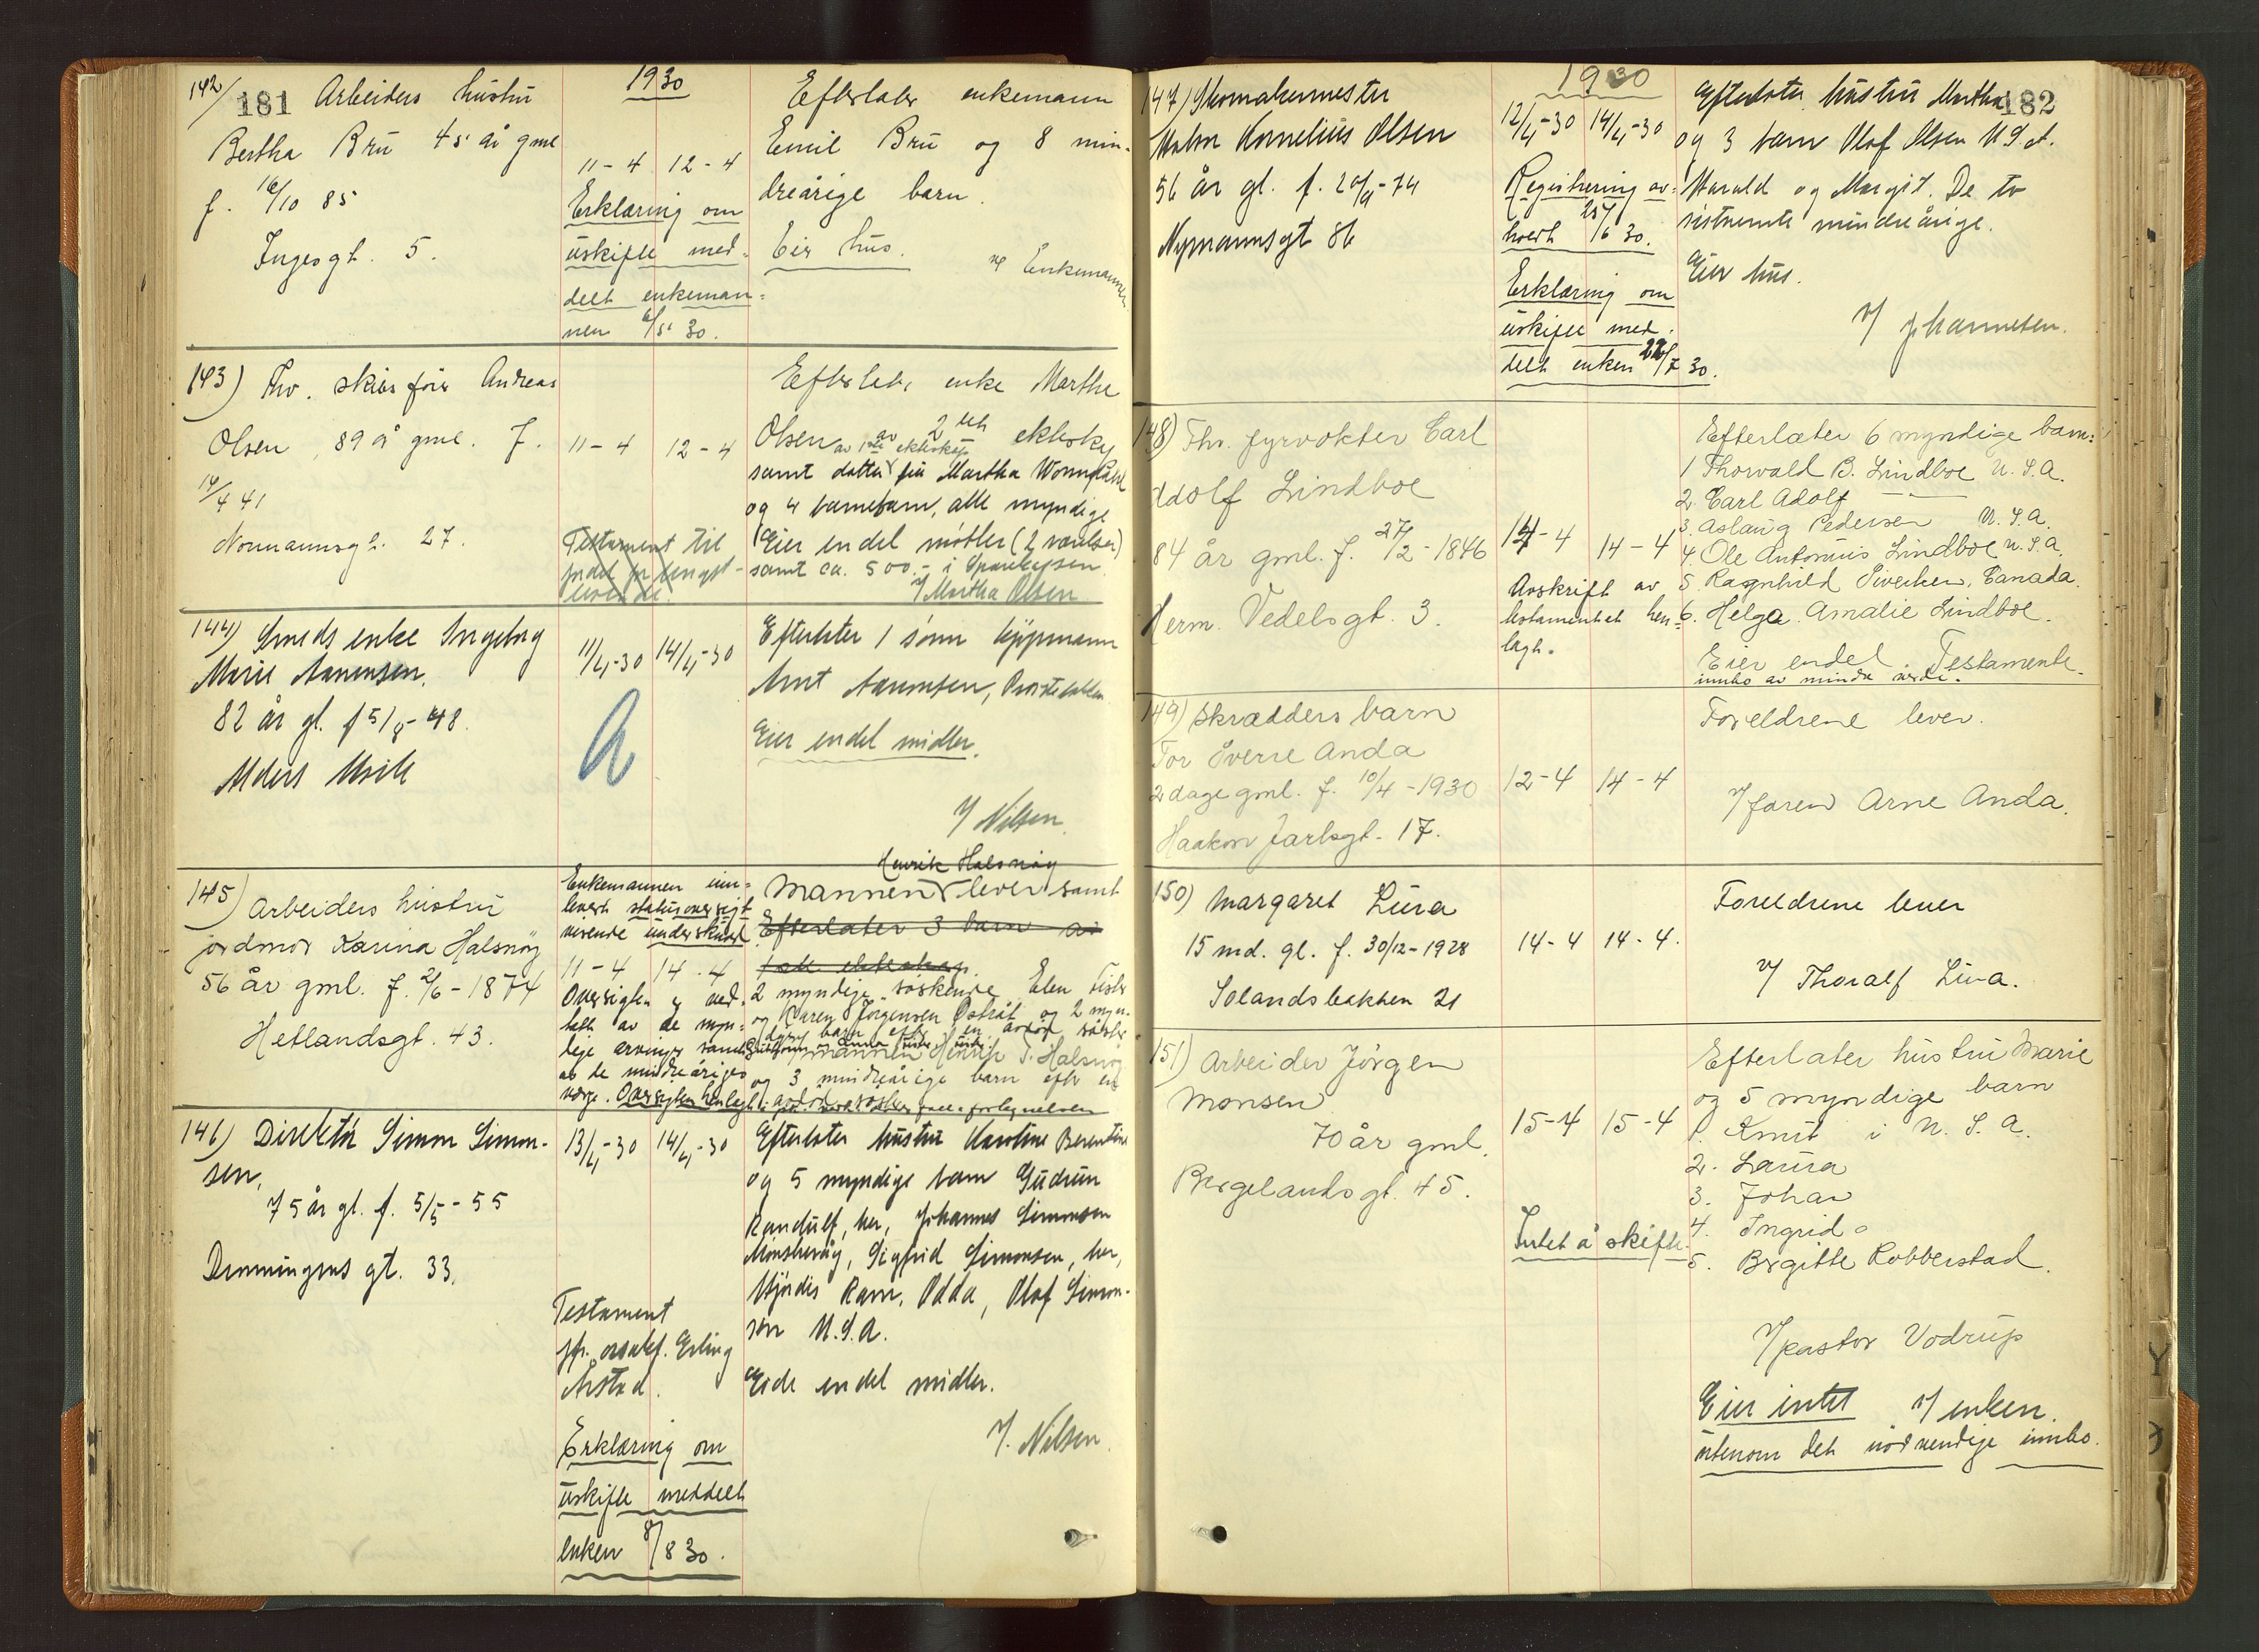 181
1930
142/ Arbeiders hustru
Bertha Bru 45 år gml
f. 16/10 85
Ingesgt. 5.
11-4 12-4
Erklæring om
uskifte med-
delt enkeman-
nen 6/5 30.
Efterlater enkemann
Emil Bru og 8 min-
dreårige barn.
Eier hus.
v/ Enkemannen
143) Fhv. skibsfører Andreas
Olsen, 89 år gml. f.
14/4 41
Normannsgt. 27.
11-4 12-4
Testament til
fordel for lengst-
levende.
Efterlater enke Marthe
Olsen av 2det ekteskap
av 1ste ekteskap
samt datter fru Martha
og 4 barnebarn, alle myndige
Eier en del møbler (2 værelser)
samt ca. 500.- i Sparekassen
v/ Martha Olsen
144) Smeds enke Ingeborg
Marie Aanensen.
82 år gl. f 5/8-48.
Alders Hvile
11/4-30 14/4-30
Efterlater 1 sønn kjøpmann
Arnt Aanensen,
Eier en del midler.
v/ Nilsen.
145) Arbeiders hustru
jordmor Karina Halsnøy
56 år gml. f. 2/6-1874
Hetlandsgt. 43.
Enkemannen inn-
levert statusoversigt
visende underskudd
11-4 14-4
Oversigten er ved-
tatt av de myn-
dige arvinger samt
av de mindreåriges
verge. Oversigten henlagt
Henrik Halsnøy
Mannen lever samt
Efterlater 3 barn av
1ste ekteskap.
2 myndige søskende Elen
og Karen Jørgensen Østråt og 2 myn-
dige barn efter en avdød søster
mannen Henrik T. Halsnøy
og 3 mindreårige barn efter en
avdød søster
146) Direktør Simon Simon-
sen,
75 år gl. f. 5/5-55
Dronningens gt. 33.
13/4-30 14/4-30
Testament
jfr. o.r.sakf. Erling
Årstad.
Erklæring om
uskifte meddelt
enken 8/8 30.
Efterlater hustru Karoline Berentine
og 5 myndige barn Gudrun
Randulf, her, Johannes Simonsen
Sigfrid Simonsen, her,
Hjørdis Ravn, Odda, Olaf Simon-
sen U.S.A.
Eide en del midler.
v/. Nilsen.
182
1930
147) Skomakermester
Maton Kornelius Olsen
56 år gl. f. 20/9-74
Nymannsgt 86
12/4-30 14/4-30
Registrering av-
holdt 25/6 30.
Erklæring om
uskifte med-
delt enken 22/7 30.
Efterlater hustru Martha
og 3 barn Olaf Olsen U.S.A.
Harald og Margit. De to
sistnevnte mindreårige.
Eier hus.
v/ Johannesen.
148) Fhv. fyrvokter Carl
Adolf Lindboe
84 år gml. f. 27/2-1846
Herm. Vedelsgt. 3.
14-4 14-4
Avskrift av
testamentet hen-
lagt.
Efterlater 6 myndige barn:
1 Thorvald B. Lindboe U.S.A.
2. Carl Adolf —
3. Aslaug Pedersen U.S.A.
4. Ole Antonius Lindboe U.S.A.
5. Ragnhild Sivertsen, Canada.
6. Helga Amalie Lindboe.
Eier endel. Testamente.
innbo av mindre verdi.
149) Skrædders barn
Tor Sverre Anda
2 dage gml. f. 10/4-1930
Haakon Jarlsgt. 17.
12-4 14-4
Foreldrene lever.
v/ faren Arne Anda.
150) Margaret Lura
15 md. gl. f. 30/12-1928
Solandsbakken 21
14-4 14-4.
Foreldrene lever
v/ Thoralf Lura.
151) Arbeider Jörgen
Monsen
70 år gml.
Bergelandsgt. 45.
15-4 15-4
Intet å skifte.
Efterlater hustru Marie
og 5 myndige barn
1. Knut i U.S.A.
2. Laura
3. Johan
4. Ingrid
5. Brgitte Robberstad.
v/ pastor Vodrup
Eier intet v/ enken.
utenom det nödvendige innbo.